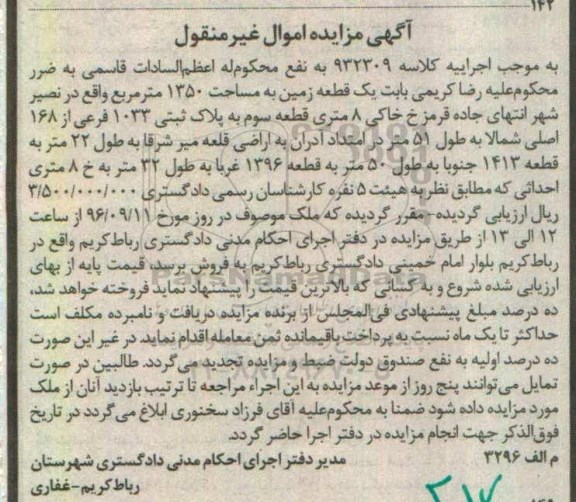 ۱۴۲
آگهی مزایده اموال غیرمنقول
به موجب اجراییه کلاسه ۹۳۲۳۰۹ به نفع محکوم‌له اعظم‌السادات قاسمی به ضرر
محکوم‌علیه رضا کریمی بابت یک قطعه زمین به مساحت ۱۳۵۰ مترمربع واقع در نصیر
شهر انتهای جاده قرمز خ خاکی ۸ متری قطعه سوم به پلاک ثبتی ۱۰۳۳ فرعی از ۱۶۸
اصلی شمالا به طول ۵۱ متر در امتداد آدران به اراضی قلعه میر شرقا به طول ۲۲ متر به
قطعه ۱۴۱۳ جنوبا به طول ۵۰ متر به قطعه ۱۳۹۶ غربا به طول ۳۲ متر به خ ۸ متری
احداثی که مطابق نظریه هیئت ۵ نفره کارشناسان رسمی دادگستری ۳/۵۰۰/۰۰۰/۰۰۰
ریال ارزیابی گردیده مقرر گردیده که ملک موصوف در روز مورخ ۹۶/۰۹/۱۱ از ساعت
۱۲ الی ۱۳ از طریق مزایده در دفتر اجرای احکام مدنی دادگستری رباط‌کریم واقع در
رباط‌کریم بلوار امام خمینی دادگستری رباط‌کریم به فروش برسد، قیمت پایه از بهای
ارزیابی شده شروع و به کسانی که بالاترین قیمت را پیشنهاد نماید فروخته خواهد شد،
ده درصد مبلغ پیشنهادی فی‌المجلس از برنده مزایده دریافت و نامبرده مکلف است
حداکثر تا یک ماه نسبت به پرداخت باقیمانده ثمن معامله اقدام نماید، در غیر این صورت
ده درصد اولیه به نفع صندوق دولت ضبط و مزایده تجدید می‌گردد. طالبین در صورت
تمایل می‌توانند پنج روز از موعد مزایده به این اجراء مراجعه تا ترتیب بازدید آنان از ملک
مورد مزایده داده شود ضمنا به محکوم‌علیه آقای فرزاد سخنوری ابلاغ می‌گردد در تاریخ
فوق‌الذکر جهت انجام مزایده در دفتر اجرا حاضر گردد.
م الف ۳۲۹۶ مدیر دفتر اجرای احکام مدنی دادگستری شهرستان
رباط‌کریم-غفاری